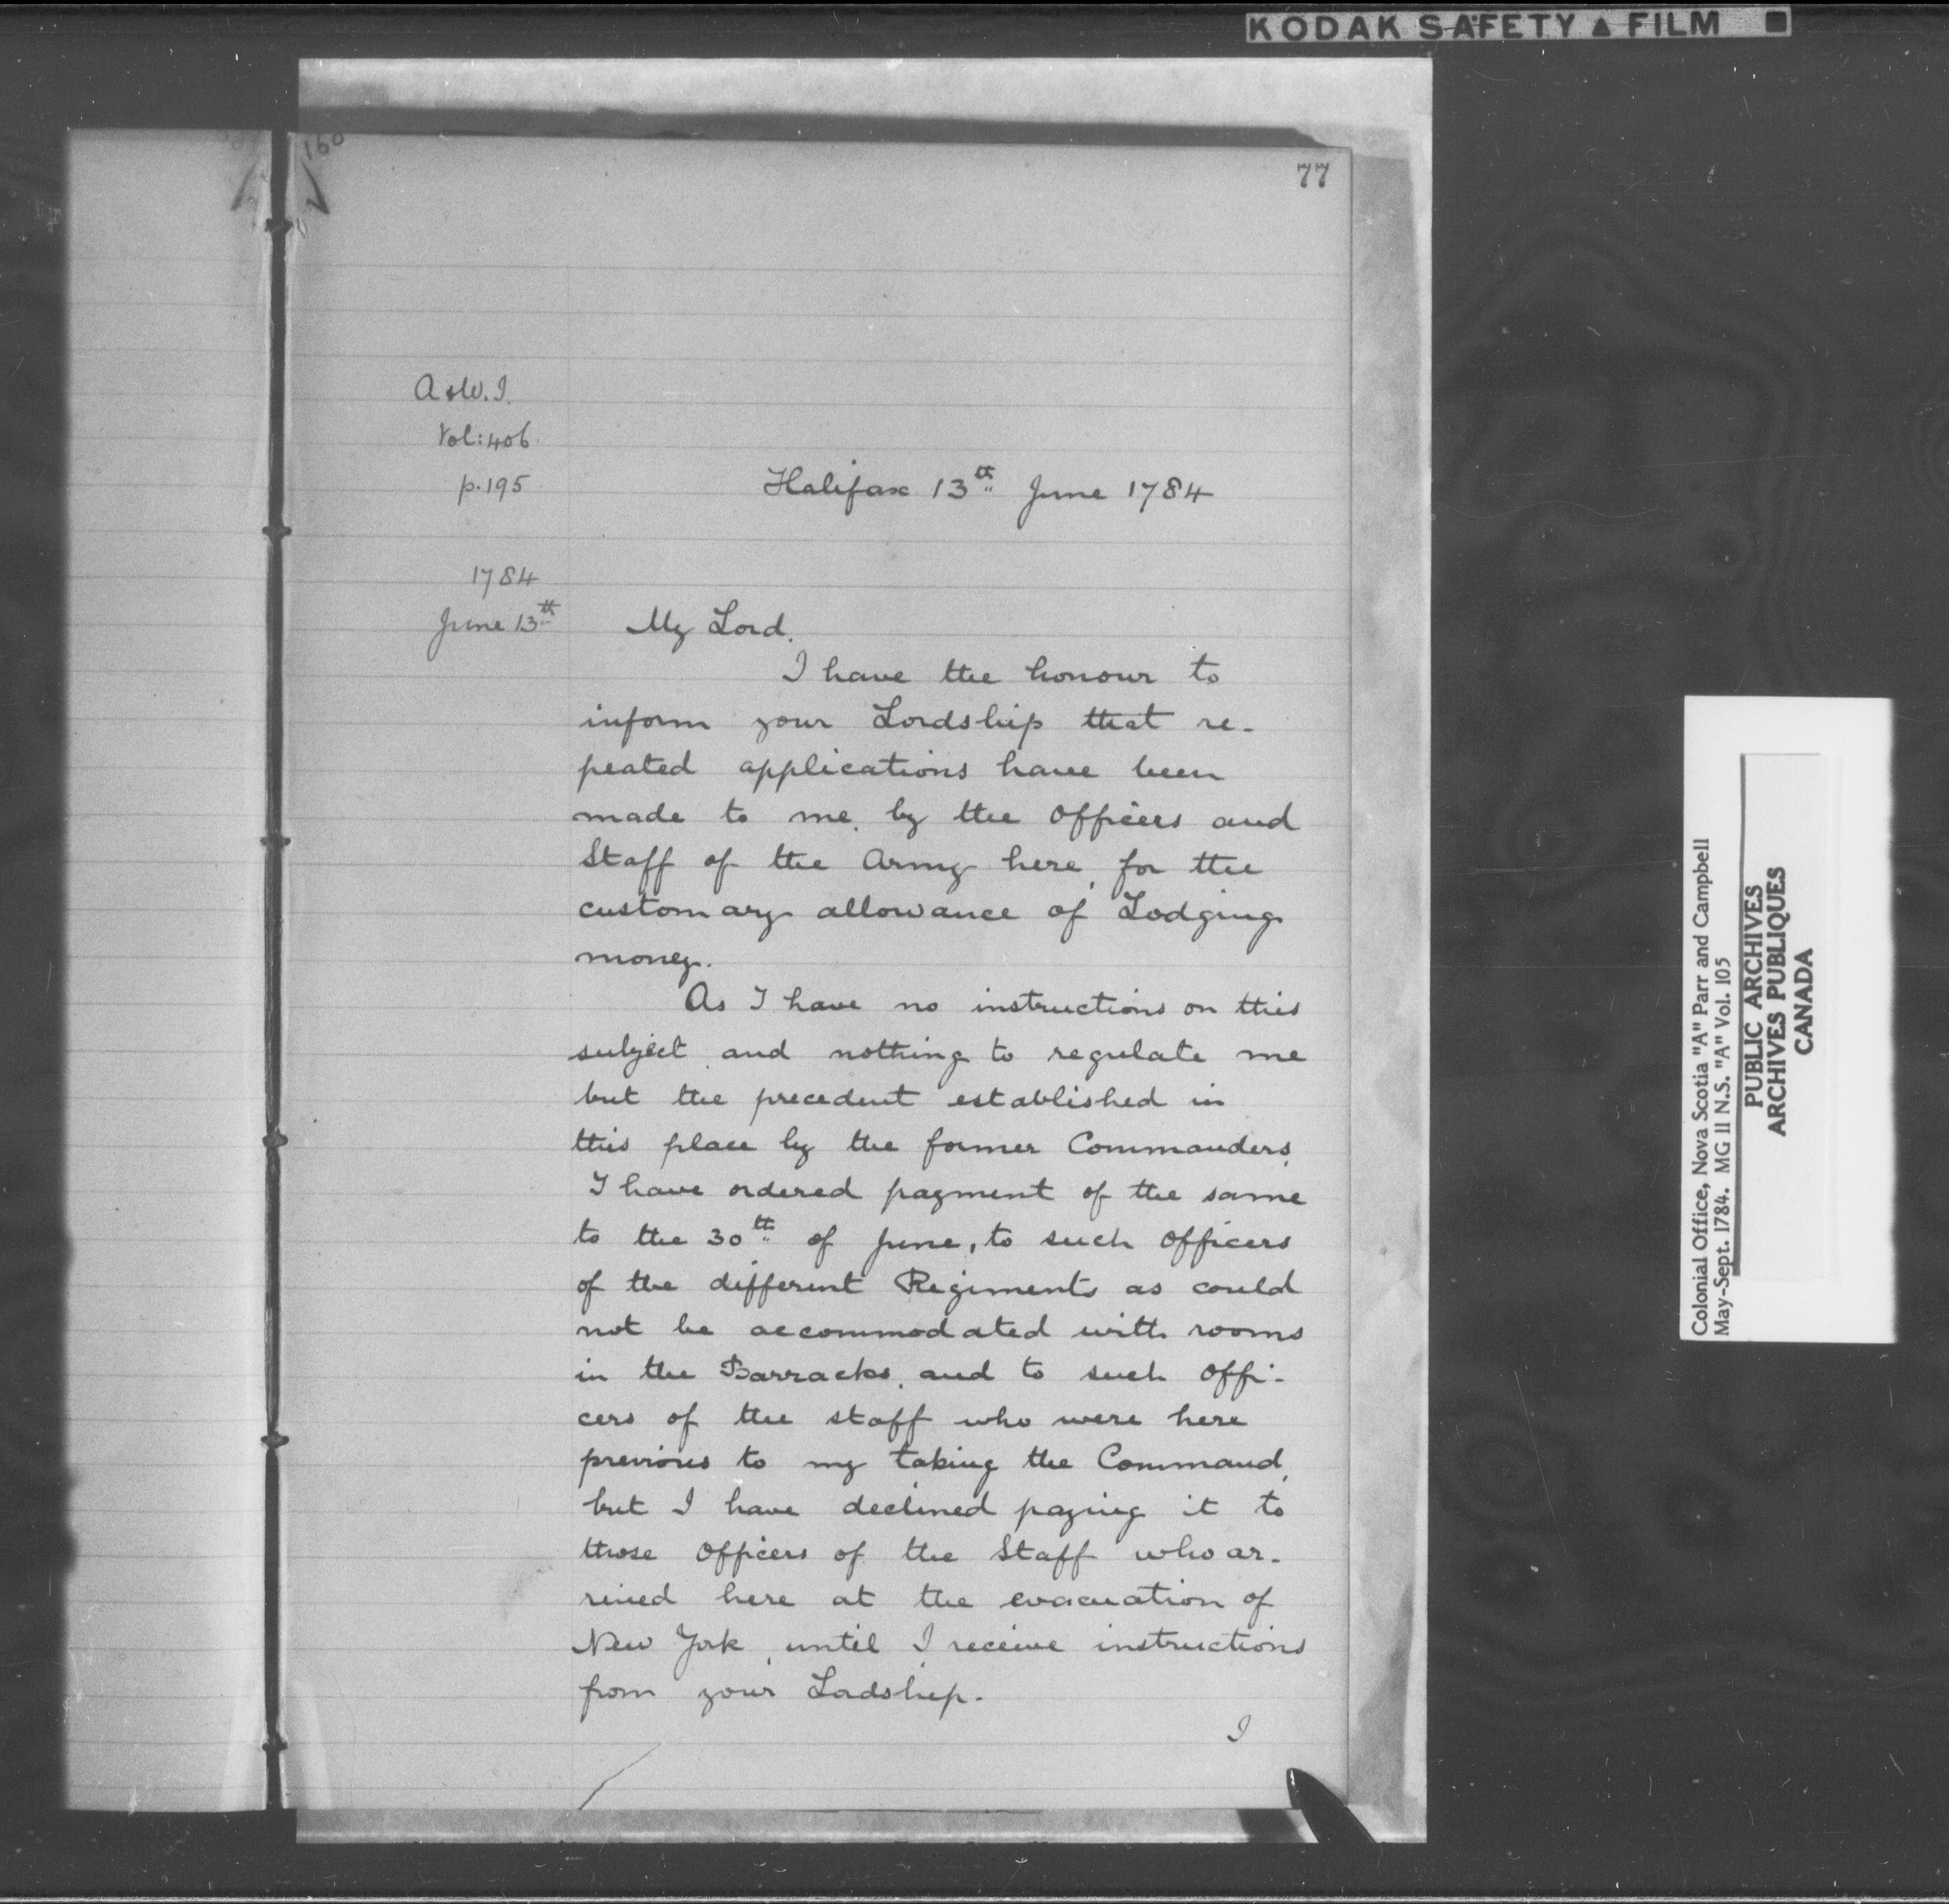 KODAK SAFETY ▲ FILM ■
160
77
A & W. I.
Vol: 406
p. 195
Halifax 13th June 1784
1784
June 13th
My Lord,
I have the honour to
inform your Lordship that re-
peated applications have been
made to me, by the Officers and
Staff of the Army here, for the
customary allowance of Lodging
money.
As I have no instructions on this
subject, and nothing to regulate me
but the precedent established in
this place by the former Commanders,
I have ordered payment of the same
to the 30th of June, to such Officers
of the different Regiments as could
not be accommodated with rooms
in the Barracks, and to such Offi-
cers of the staff who were here
previous to my taking the Command,
but I have declined paying it to
those Officers of the Staff who ar-
rived here at the evacuation of
New York, until I receive instructions
from your Lordship.
I
Colonial Office, Nova Scotia "A" Parr and Campbell
May-Sept. 1784. MG 11 N.S. "A" Vol. 105
PUBLIC ARCHIVES
ARCHIVES PUBLIQUES
CANADA